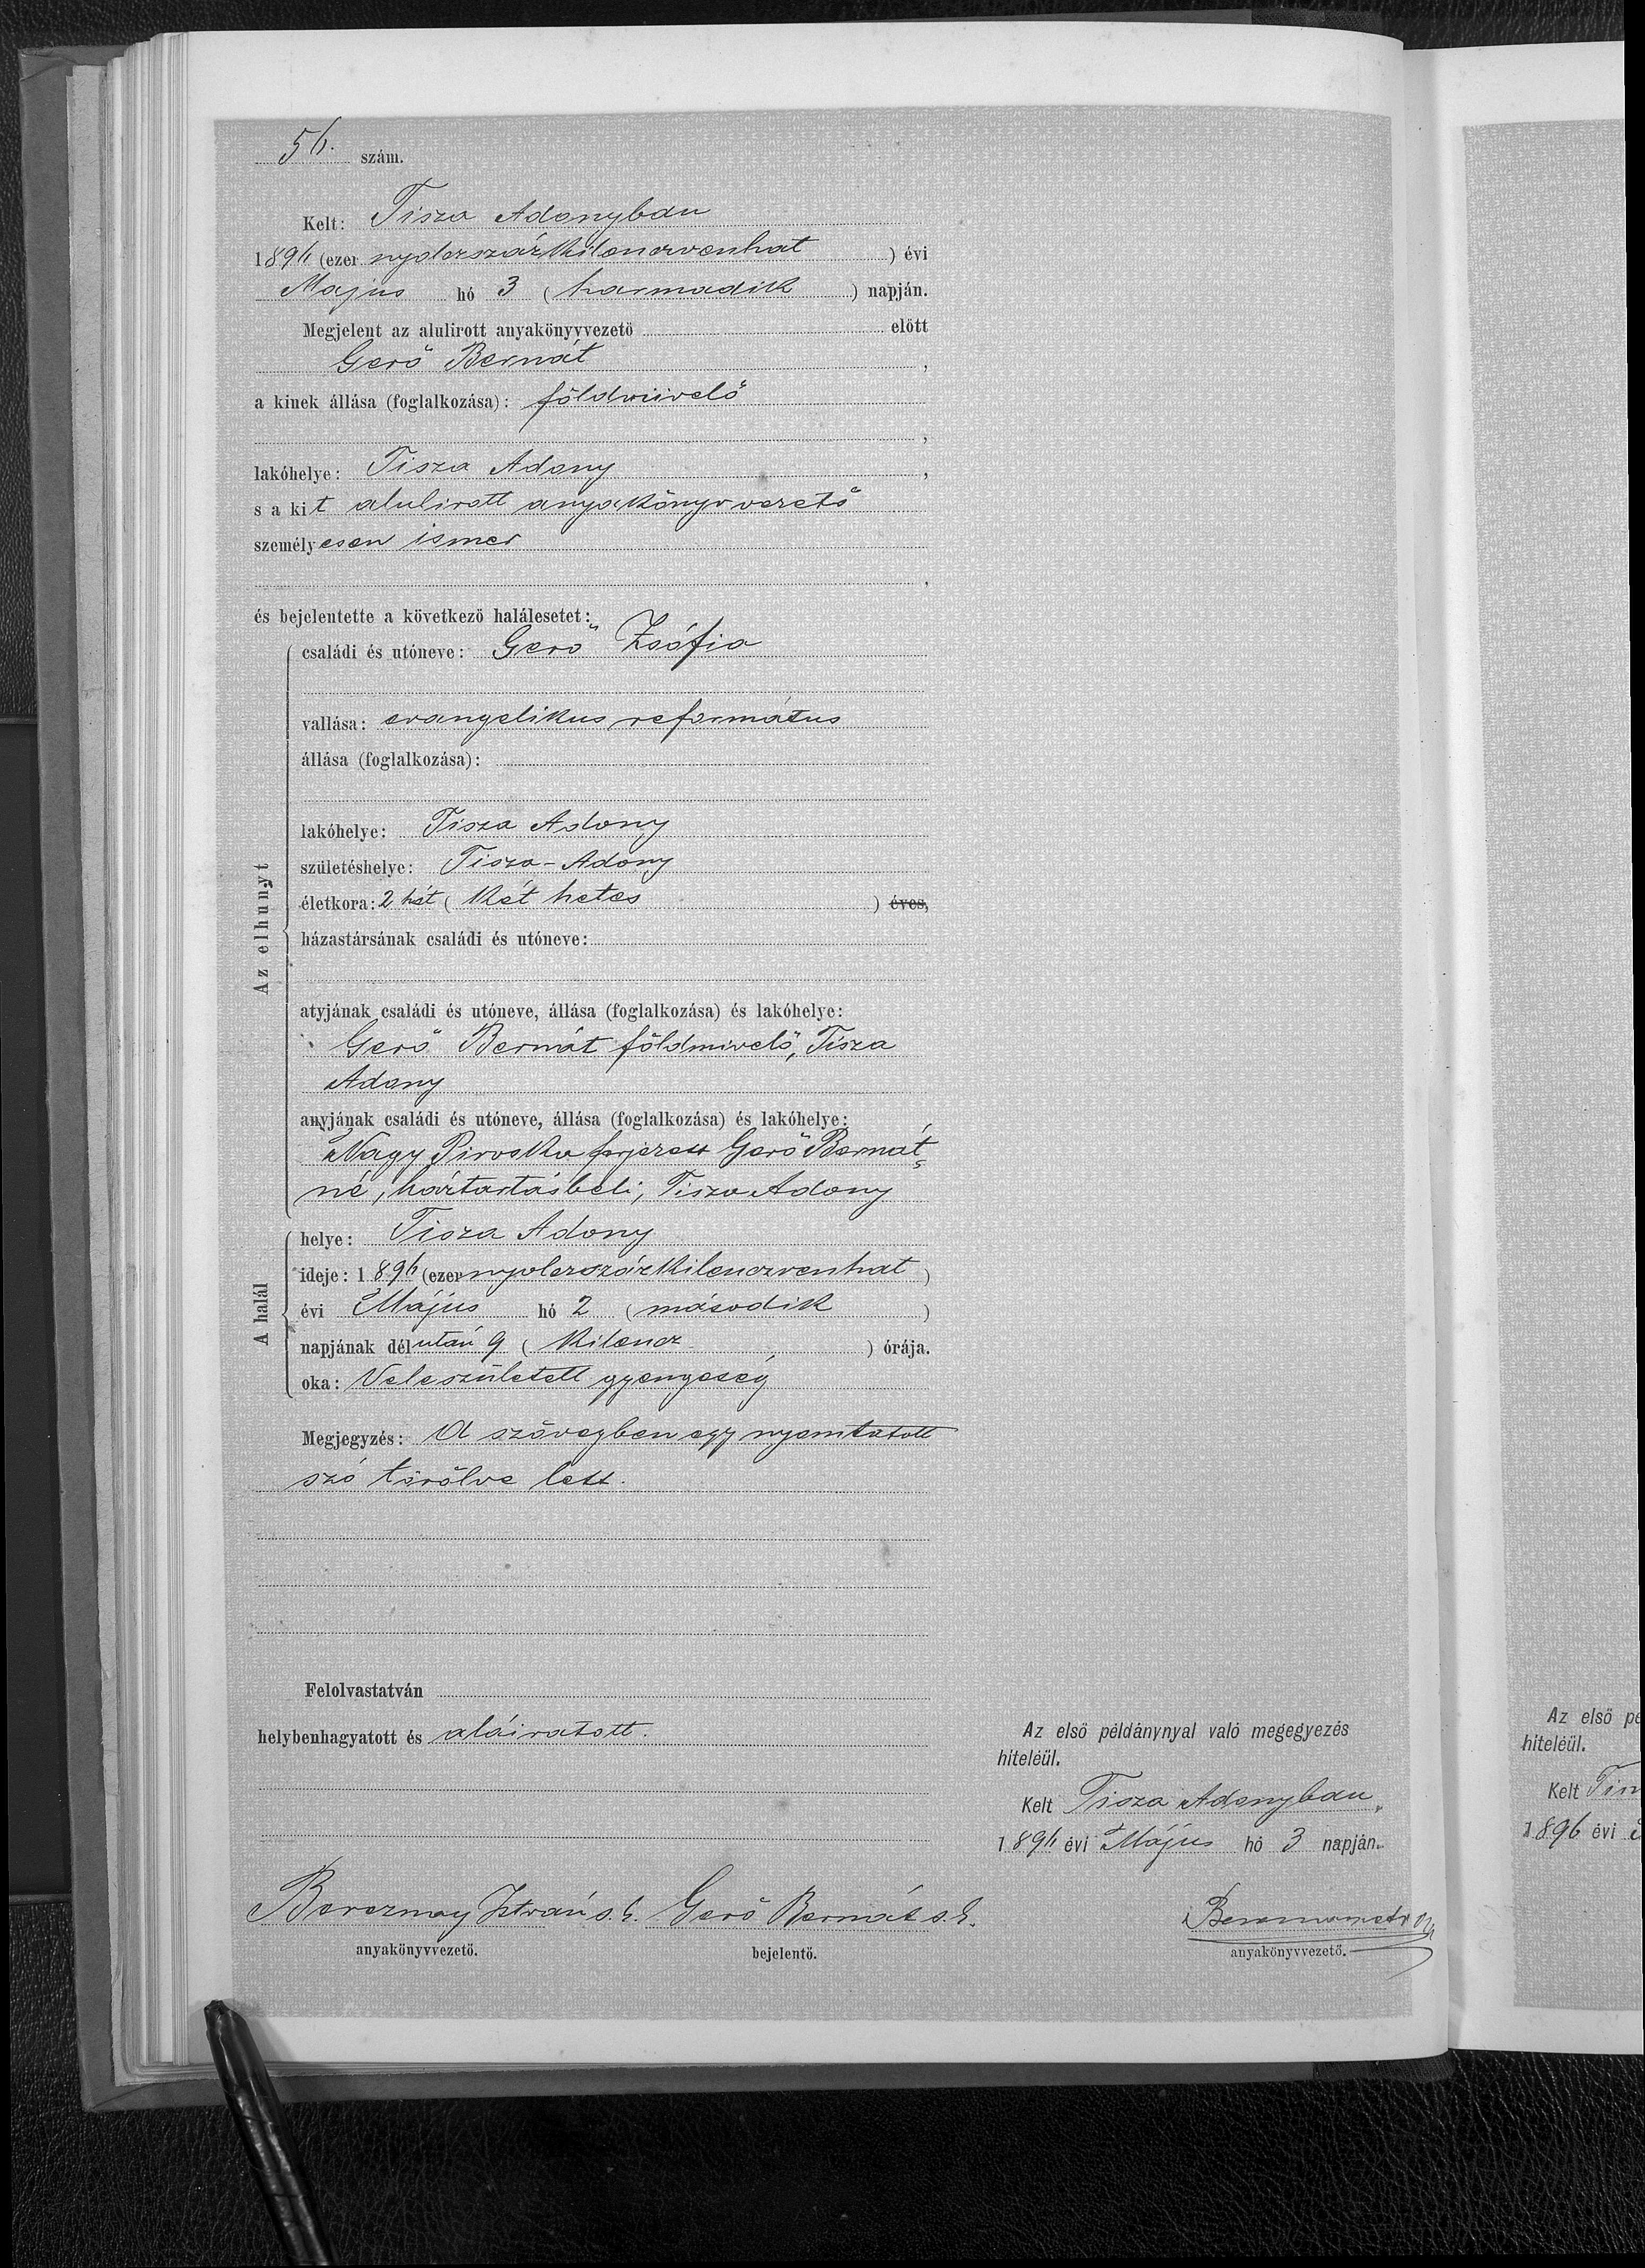 56. szám.
Kelt: Tisza Adonyban
1896 (ezer nyolczszázkilenczvenhat ) évi
Majus hó 3 ( harmadik ) napján.
Megjelent az alulirott anyakönyvvezető előtt
Gerő Bernát ,
a kinek állása (foglalkozása): földmüvelő
,
lakóhelye: Tisza Adony ,
s a kit alulirott anyakönyvvezető
személyesen ismer
,
és bejelentette a következő halálesetet:
Az elhunyt
családi és utóneve: Gerő Zsófia
vallása: evangelikus református
állása (foglalkozása):
lakóhelye: Tisza Adony
születéshelye: Tisza-Adony
életkora: 2 hét ( Két hetes ) éves,
házastársának családi és utóneve:
atyjának családi és utóneve, állása (foglalkozása) és lakóhelye:
Gerő Bernát földmivelő, Tisza
Adony
anyjának családi és utóneve, állása (foglalkozása) és lakóhelye:
Nagy Piroska férjezett Gerő Bernát-
né, háztartásbeli, Tisza Adony
A halál
helye: Tisza Adony
ideje: 1896 (ezer nyolczszázkilenczvenhat )
évi Május hó 2 ( második )
napjának délután 9 ( Kilencz ) órája.
oka: Veleszületett gyengeség
Megjegyzés: A szövegben egy nyomtatott
szó törölve lett.
Felolvastatván
helybenhagyatott és aláiratott.
Bereznay István s. k. Gerő Bernát s. k.
anyakönyvvezető. bejelentő.
Az első példánynyal való megegyezés
hiteléül.
Kelt Tisza Adonyban,
1896 évi Május hó 3 napján.
anyakönyvvezető.
Az első pé
hiteléül.
Kelt Tisz
1896 évi